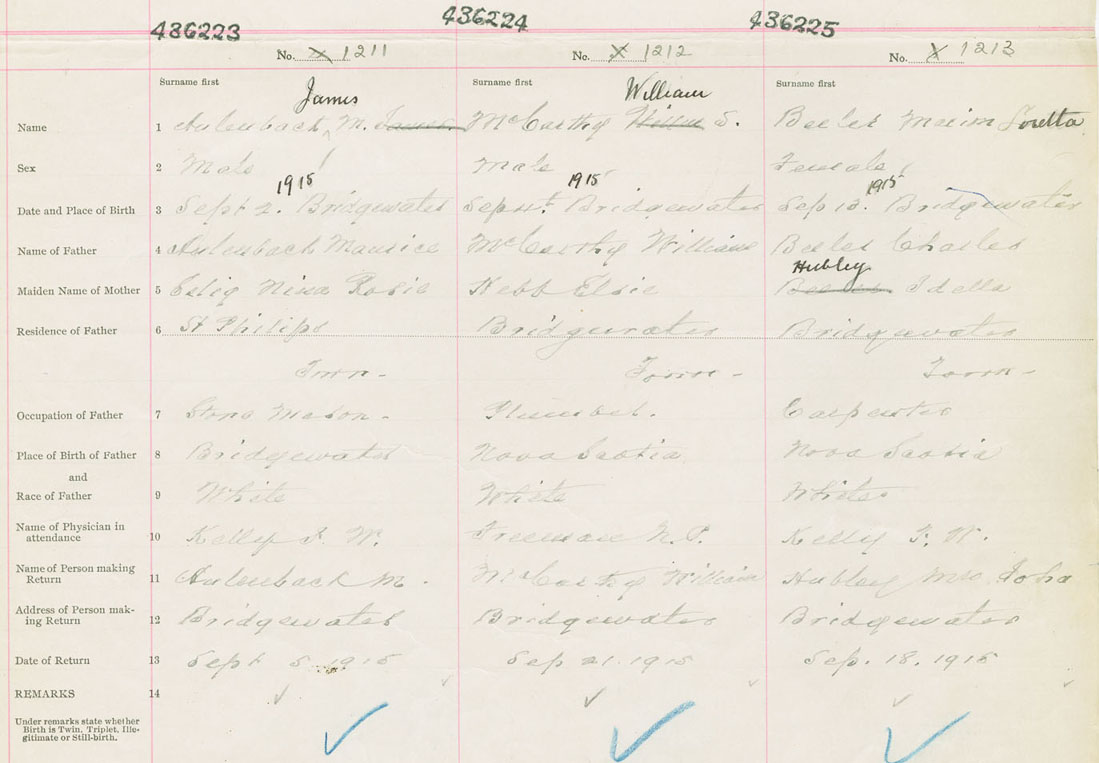 436223 436224 436225
No. X 1211 No. X 1212 No. X 1213
Surname first Surname first Surname first
James William
Name 1 Aulenback, M. James McCarthy Willie S. Beeler Maxim Loretta
Sex 2 Male Male Female
1915 1915 1915
Date and Place of Birth 3 Sept 2. Bridgewater Sep 11th. Bridgewater Sep 13. Bridgewater
Name of Father 4 Aulenback Maurice McCarthy William Beeler Charles
Hubley
Maiden Name of Mother 5 Nina Rosie Elsie Beeler Idella
Residence of Father 6 St Philips Bridgewater Bridgewater
Town - Town - Town -
Occupation of Father 7 Stone Mason - Plumber. Carpenter
Place of Birth of Father 8 Bridgewater Nova Scotia Nova Scotia
and
Race of Father 9 White White White
Name of Physician in
attendance 10 Kelly F. W. Freeman N. P. Kelly F. W.
Name of Person making
Return 11 Aulenback M. McCarthy William Hubley Mrs John
Address of Person mak-
ing Return 12 Bridgewater Bridgewater Bridgewater
Date of Return 13 Sept 5 1915 Sep 21. 1915 Sep. 18. 1915
REMARKS 14
Under remarks state whether
Birth is Twin, Triplet, Ille-
gitimate or Still-birth.